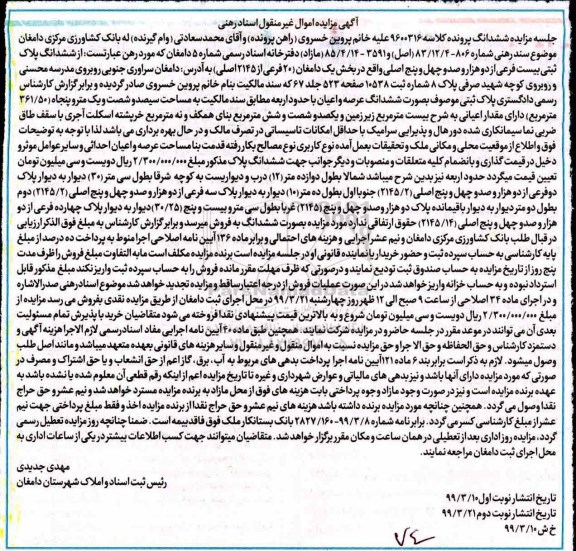 آگهی مزایده اموال غیر منقول اسناد رهنی
جلسه مزایده ششدانگ پرونده کلاسه ۹۶۰۰۳۱۶ علیه خانم پروین خسروی (راهن پرونده) و آقای محمد سعادتی (وام گیرنده) له بانک کشاورزی مرکزی دامغان
موضوع سند رهنی شماره ۸۰۶-۸۳/۱۲/۴ (اصل) و ۳۵۹۱-۸۵/۴/۱۴ (مازاد) دفترخانه اسناد رسمی شماره ۵ دامغان که مورد رهن عبارتست: از ششدانگ پلاک
ثبتی بیست فرعی از دو هزار و صد و چهل و پنج اصلی واقع در بخش یک دامغان (۲۰ فرعی از ۲۱۴۵ اصلی) به آدرس: دامغان سراوری جنوبی روبروی مدرسه محسنی
و روبروی کوچه شهید صرفی پلاک ۸ شماره ثبت ۱۰۵۳۸ صفحه ۵۲۳ جلد ۶۷ که سند مالکیت بنام خانم پروین خسروی صادر گردیده و برابر گزارش کارشناس
رسمی دادگستری پلاک ثبتی موصوف بصورت ششدانگ عرصه و اعیان با حدود اربعه مطابق سند مالکیت به مساحت سیصد و شصت و یک متر و پنجاه (۳۶۱/۵۰
مترمربع) دارای مقدار اعیانی به شرح بیست مترمربع زیرزمین و یکصد و شصت و شش مترمربع بنای همکف و نه مترمربع خرپشته اسکلت آجری با سقف طاق
ضربی نما سیمانکاری شده دور هال و پذیرایی سرامیک با حداقل امکانات تاسیساتی در تصرف مالک و در حال بهره برداری می باشد لذا با توجه به توضیحات
فوق و اطلاع از موقعیت محلی و مکانی ملک و تحقیقات بعمل آمده نوع کاربری نوع مصالح بکار رفته قدمت بنا مساحت عرصه و اعیان احداثی و سایر عوامل موثر و
دخیل در قیمت گذاری و بانضمام کلیه متعلقات و منصوبات و دیگر جوانب جهت ششدانگ پلاک مذکور مبلغ ۲/۳۰۰/۰۰۰/۰۰۰ ریال دویست و سی میلیون تومان
تعیین قیمت میگردد حدود اربعه نیز بدین شرح میباشد شمالا بطول دوازده متر (۱۲) درب و دیواریست به کوچه شرقا بطول سی متر (۳۰) دیوار به دیوار پلاک
دو فرعی از دو هزار و صد و چهل و پنج اصلی (۲۱۴۵/۲) جنوبا اول بطول ده متر (۱۰) دیوار به دیوار پلاک سه فرعی از دو هزار و صد و چهل و پنج اصلی (۲۱۴۵/۲) دوم
بطول دو متر دیوار به دیوار باقیمانده پلاک دو هزار و صد و چهل و پنج (۲۱۴۵) غربا بطول سی متر و بیست و پنج (۳۰/۲۵) دیوار به دیوار پلاک چهارده فرعی از دو
هزار و صد و چهل و پنج اصلی (۲۱۴۵/۱۴) حقوق ارتفاقی ندارد مورد مزایده بصورت ششدانگ به فروش میرسد و برابر گزارش کارشناس به مبلغ فوق الذکر ارزیابی
در قبال طلب بانک کشاورزی مرکزی دامغان و نیم عشر اجرایی و هزینه های احتمالی و برابر ماده ۱۳۶ آیین نامه اصلاحی اجرا منوط به پرداخت ده درصد از مبلغ
پایه کارشناسی به حساب سپرده ثبت و حضور خریدار یا نماینده قانونی او در جلسه مزایده است برنده مزایده مکلف است مابه التفاوت مبلغ فروش را ظرف مدت
پنج روز از تاریخ مزایده به حساب صندوق ثبت تودیع نمایند و درصورتی که ظرف مهلت مقرر مانده فروش را به حساب سپرده ثبت واریز نکند مبلغ مذکور قابل
استرداد نبوده و به حساب خزانه واریز خواهد شد در این صورت عملیات فروش از درجه اعتبار ساقط و مزایده تجدید خواهد شد موضوع اسناد رهنی صدرالاشاره
و در اجرای ماده ۳۴ اصلاحی از ساعت ۹ صبح الی ۱۲ ظهر روز چهارشنبه ۹۹/۳/۲۱ در محل اجرای ثبت دامغان از طریق مزایده نقدی بفروش می رسد مزایده از
مبلغ ۲/۳۰۰/۰۰۰/۰۰۰ ریال دویست و سی میلیون تومان شروع و به بالاترین قیمت پیشنهادی نقدا فروخته می شود متقاضیان خرید با پذیرش تمام مسئولیت
بعدی آن می توانند در موعد مقرر در جلسه حاضر و در مزایده شرکت نمایند. همچنین طبق ماده ۴۰ آیین نامه اجرایی مفاد اسناد رسمی لازم الاجرا هزینه آگهی و
دستمزد کارشناس و حق الحفاظه و حق الا جرا و حق مزایده نسبت به اموال منقول و غیر منقول و سایر هزینه های قانونی بعهده متعهد میباشد و مانند اصل طلب
وصول میشود. لازم به ذکر است برابر بند ۶ ماده ۱۲۱ آئین نامه اجرا پرداخت بدهی های مربوط به آب، برق، گاز اعم از حق انشعاب و یا حق اشتراک و مصرف در
صورتی که مورد مزایده دارای آنها باشد و نیز بدهی های مالیاتی و عوارض شهرداری و غیره تا تاریخ مزایده اعم از اینکه رقم قطعی آن معلوم شده یا نشده باشد به
عهده برنده مزایده است و نیز در صورت وجود مازاد وجوه پرداختی بابت هزینه های فوق از محل مازاد به برنده مزایده مسترد خواهد شد و نیم عشر و حق حراج
نقدا وصول می گردد. همچنین چنانچه مورد مزایده برنده داشته باشد هزینه های نیم عشر و حق حراج نقدا از برنده مزایده اخذ و فقط مبلغ پرداختی جهت نیم
عشر از مبلغ کارشناسی کسر می گردد. برابر نامه شماره ۲۸۲۷/۱۶۰-۹۹/۳/۸ بانک بستانکار ملک فوق فاقد بیمه است. ضمنا چنانچه روز مزایده تعطیل رسمی
گردد، مزایده روز اداری بعد از تعطیلی در همان ساعت و مکان مقرر برگزار خواهد شد. متقاضیان میتوانند جهت کسب اطلاعات بیشتر در یکی از ساعات اداری به
محل اجرای ثبت دامغان مراجعه نمایند.
مهدی جدیدی
رئیس ثبت اسناد و املاک شهرستان دامغان
تاریخ انتشار نوبت اول ۹۹/۳/۱۰
تاریخ انتشار نوبت دوم ۹۹/۳/۲۱
خ ش ۹۹/۳/۱۰